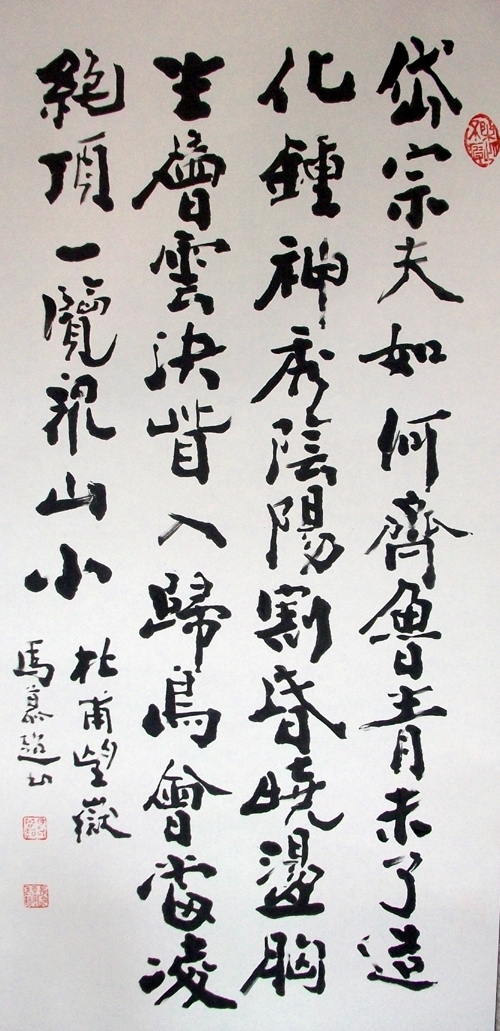 岱宗夫如何齊魯青未了造
化鍾神秀陰陽割昏曉盪胸
生層雲決眥入歸鳥會當凌
絕頂一覽眾山小
杜甫望嶽
馬慕超书